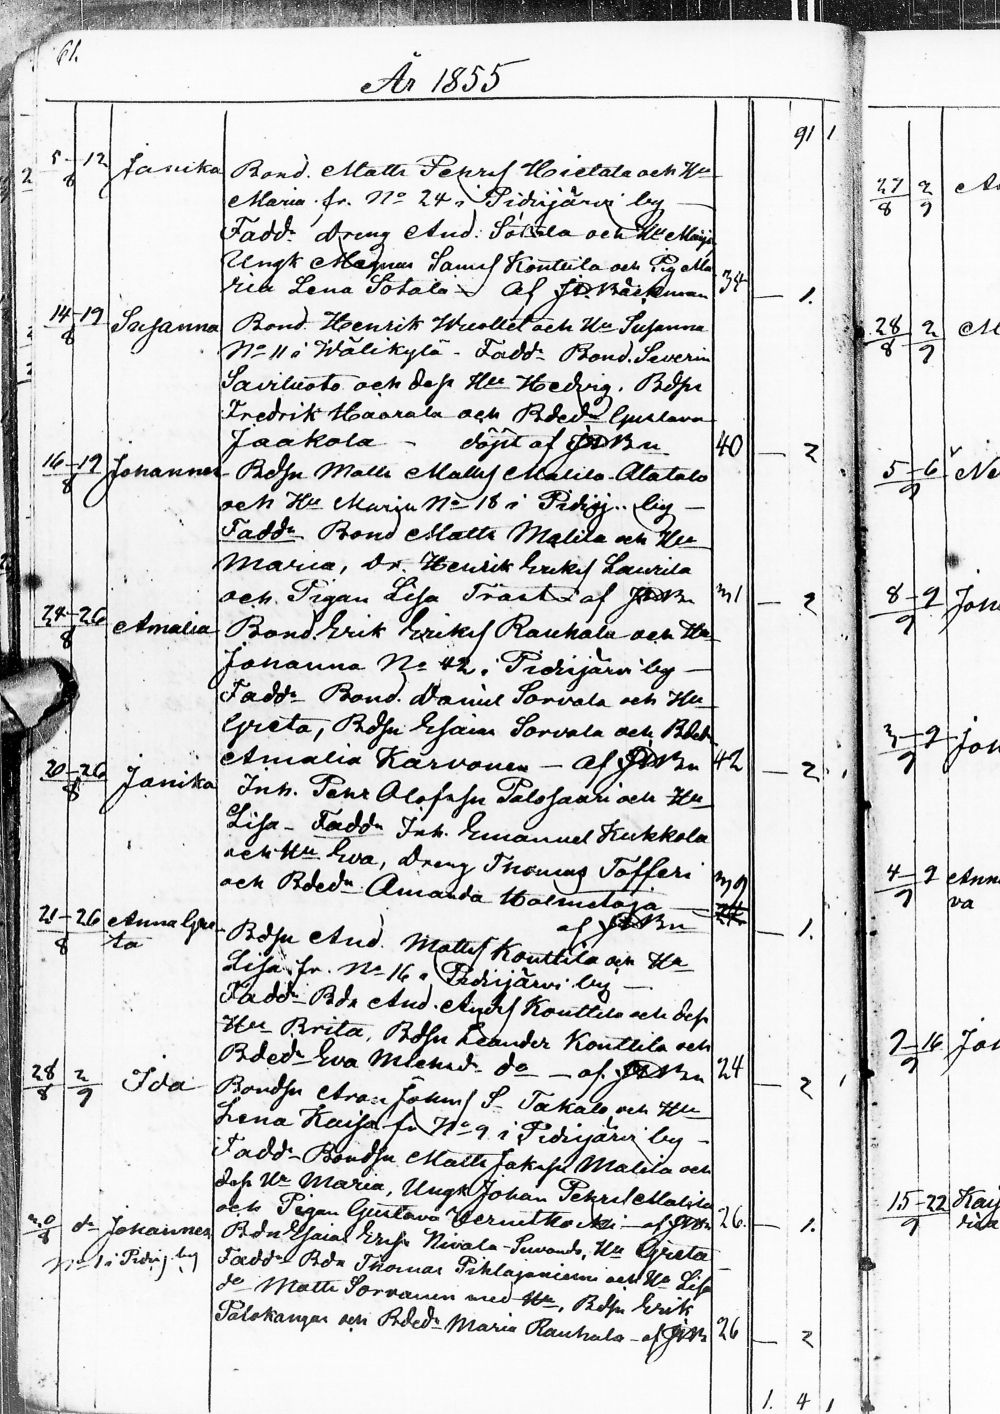 61.
År 1855
91 1
5-12/8 Janika Bond. Matts Pehrs Hietala och Hu
Maria fr. No 24 i Pidisjärvi by
Fadd. Dreng And. Sotala och Hu Maija
Ungk Magnus Sams Konttila och Pig Ma
ria Lena Sotala - af Bäckman 34 1.
14-19/8 Susanna Bond. Henrik Wuollet och Hu Susanna
No 11 i Wälikylä - Fadd. Bond. Severin
Saviluoto och dess Hu Hedvig. Bdsn
Fredrik Haarala och Bded. Gustava
Jaakola - döpt af 40 2
16-19/8 Johannes Bdsn Matts Matts Malila Alatalo
och Hu Maria No 18 i Pidisj. by
Fadd. Bond Matts Malila och Hu
Maria, Dr. Henrik Eriks Laurila
och Pigan Lisa Träst af 31 2
24-26/8 Amalia Bond. Erik Eriks Rauhala och Hu
Johanna No 42 i Pidisjärvi by
Fadd. Bond. Daniel Sorvala och Hu
Greta, Bdsn Esaias Sorvala och Bded.
Amalia Karvonen - af 42 2
20-26/8 Janika Inh. Pehr Olofsson Palosaari och Hu
Lisa - Fadd. Inh. Emanuel Kukkola
och Hu Eva, Dreng Thomas Tofferi
och Bded. Amanda Holmstöja 39
af 1.
21-26/8 Anna Gre
ta Bdsn And. Matts Konttila och Hu
Lisa fr. No 16 i Pidisjärvi by
Fadd. Bdn And. Anders Konttila och dess
Hu Brita, Bdsn Leander Konttila och
Bded. Eva do - af 24 2
28/8 2/9 Ida Bondsn Aron Johans S. Takalo och Hu
Lena Kaisa fr No 9 i Pidisjärvi by
Fadd. Bondsn Matts Jakobs Malila och
dess Hu Maria, Ungk Johan Pehrs Malila
och Pigan Gustava - af 26 1.
30/8 do Johannes Bdn Esaias Ers Nivala-Suvanto, Hu Greta
No 1 i Pidisj. by Fadd. Bdn Thomas Pihlajaniemi och Hu Lisa
do Matts Sorvanen med Hu, Bdsn Erik
Palokangas och Bded. Maria Rauhala - af 26 2
1. 4 1
27/8 2/9
28/8 2/9
5-6/9
8-9/9
3-9/9
4-9/9 Ann
va
2-16/9
15-22/9 Kaj